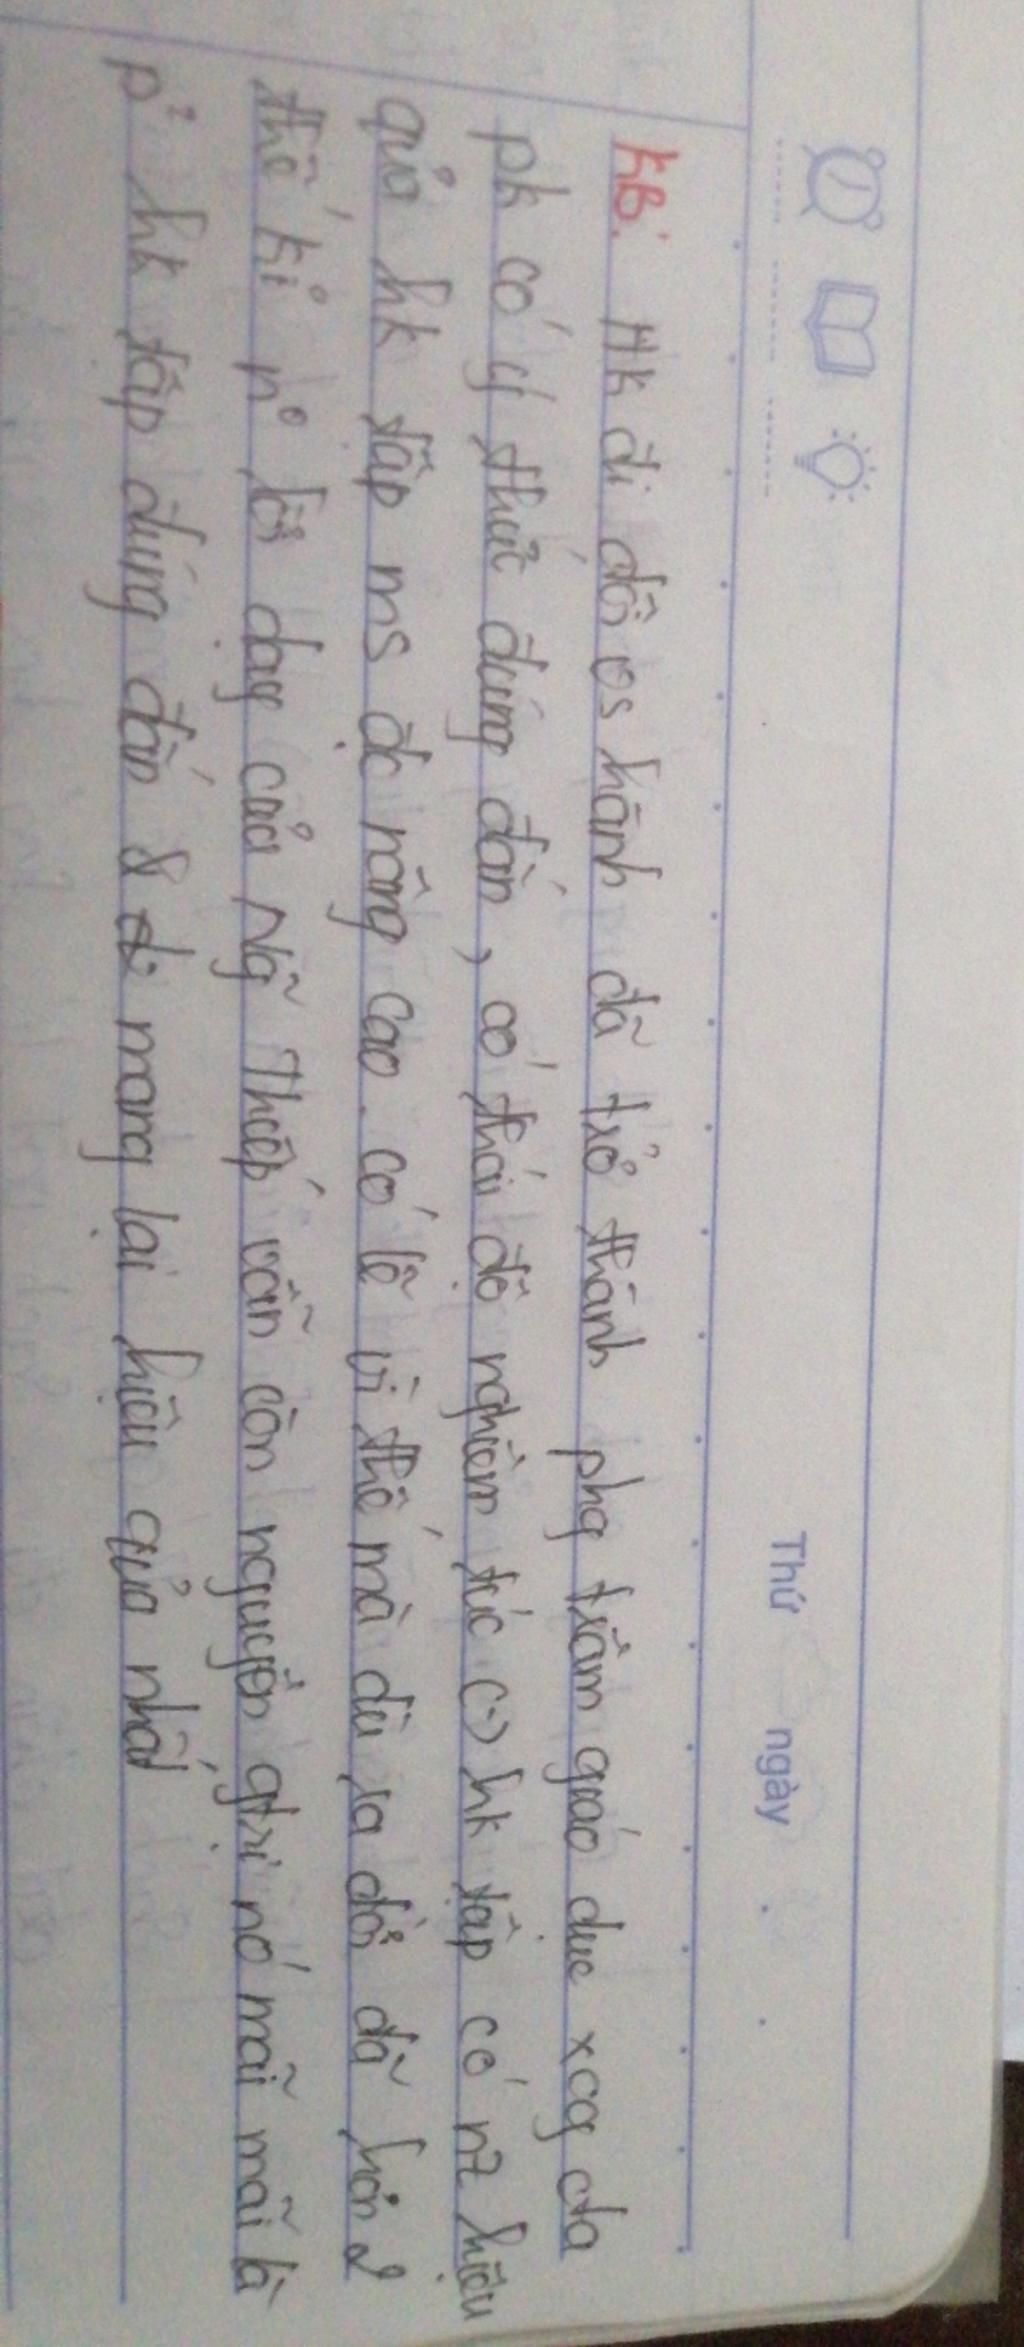 Thứ ngày
KB: Hk đi đôi vs hành đã trở thành phg trâm giáo dục xcg đa
pk có ý thức đúng đắn, có thái độ nghiêm túc (->) hk tập có n² hiệu
quả hk tập ms đc nâng cao. có lẽ vì thế mà dù ra đời đã hơn 2
thế kỉ n° lời dạy của Ng~ Thiếp vẫn còn nguyên gtrị nó mãi mãi là
p² hk tập đúng đắn & mang lại hiệu quả nhất